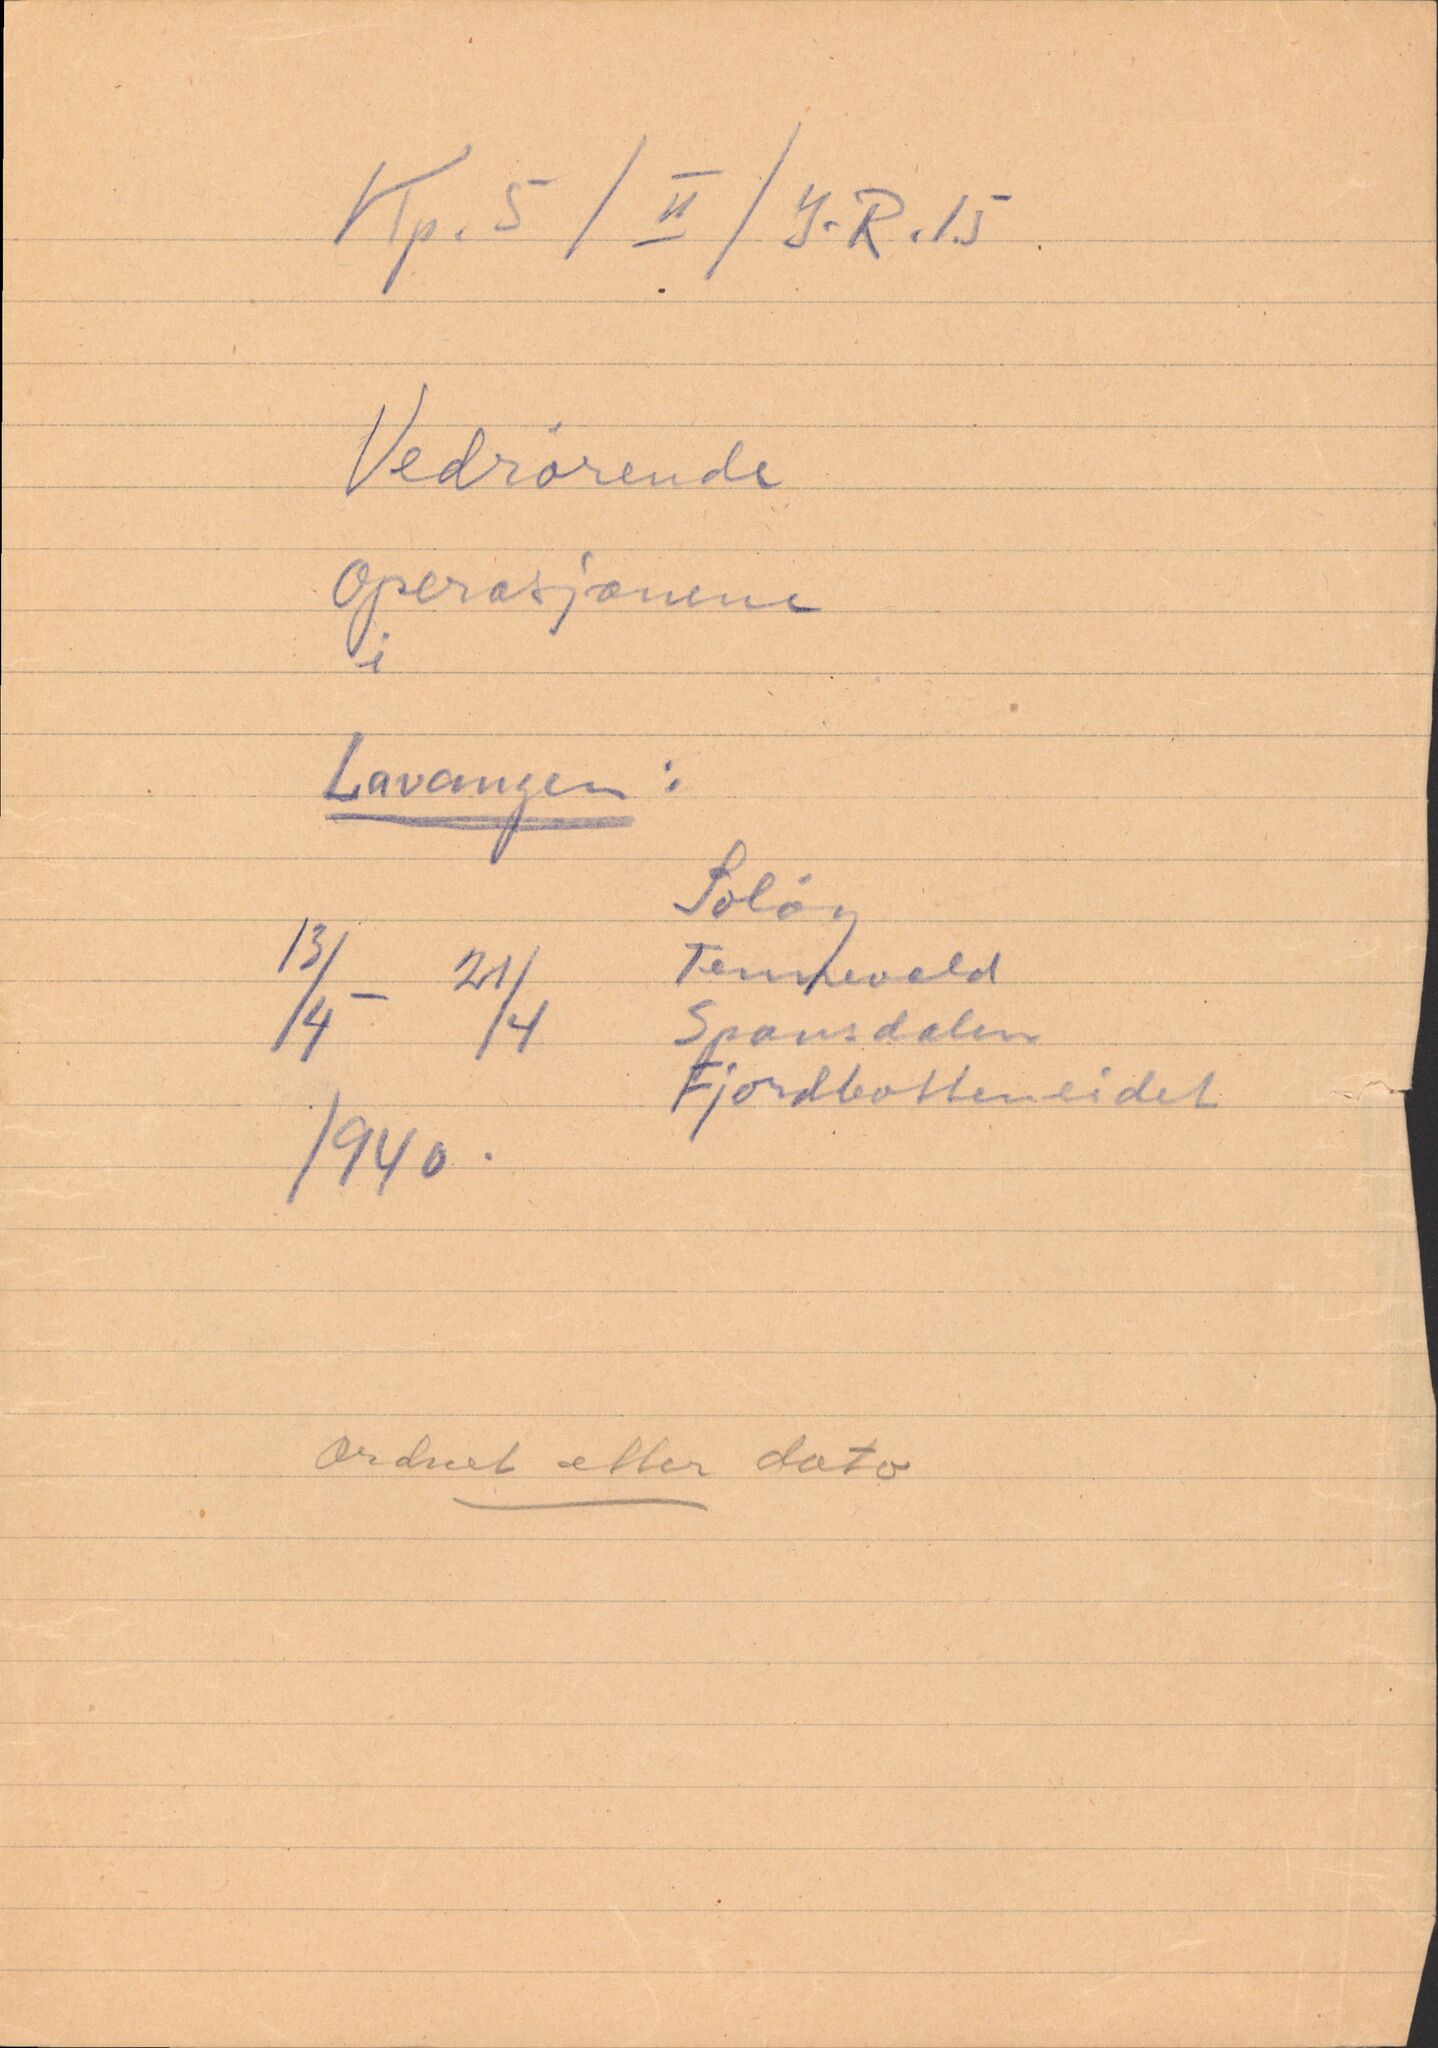 Kp. 5 / II / J.R. 15.
Vedrörende
Operasjonene
i
Lavangen:
Solöy
13/4 - 21/4 Tennevold
Spansdalen
Fjordbotteneidet
1940.
Ordnet etter dato